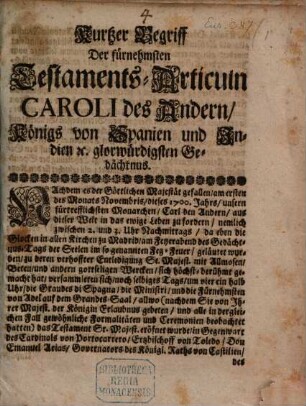 4
Kurtzer Begriff
Der fürnehmsten
Testaments-Articuln
CAROLI des Andern/
Königs von Spanien und In-
dien ꝛc. glorwürdigsten Ge-
dächtnus.
NAchdem es der Göttlichen Majestät gefallen/ am ersten
des Monats Novembris/ dieses 1700. Jahrs/ unsern
fürtrefflichsten Monarchen/ Carl den Andern/ aus
dieser Welt in das ewige Leben zu fordern/ nemlich
zwischen 2. und 3. Uhr Nachmittags/ da eben die
Glocken in allen Kirchen zu Madrid/ am Feyerabend des Gedächt-
nus-Tags der Seelen im so genannten Feg-Feuer/ geläutet wur-
den/ zu deren verhoffter Entledigung Se. Majest. mit Allmosen/
Beten/ und andern gottseligen Wercken/ sich höchst-berühmt ge-
macht hat; versammleten sich/ noch selbiges Tags/ um vier ein halb
Uhr/ die Grands d'Espagna/ die Ministri/ und des Fürnehmsten
von Adel auf dem Grandes-Saal/ allwo (nachdem Sie von Ih-
rer Majest. der Königin Erlaubnus gebeten/ und alle in derglei-
chen Fall gewöhnliche Formalitäten und Ceremonien beobachtet
hatten) das Testament Sr. Majest. eröfnet wurde/ in Gegenwart
des Cardinals von Portocarrero/ Ertzbischoff von Toledo/ Don
Emanuel Arias/ Governators des Königl. Raths von Castilien/
des
BIBLIOTHECA
REGIA
MONACENSIS